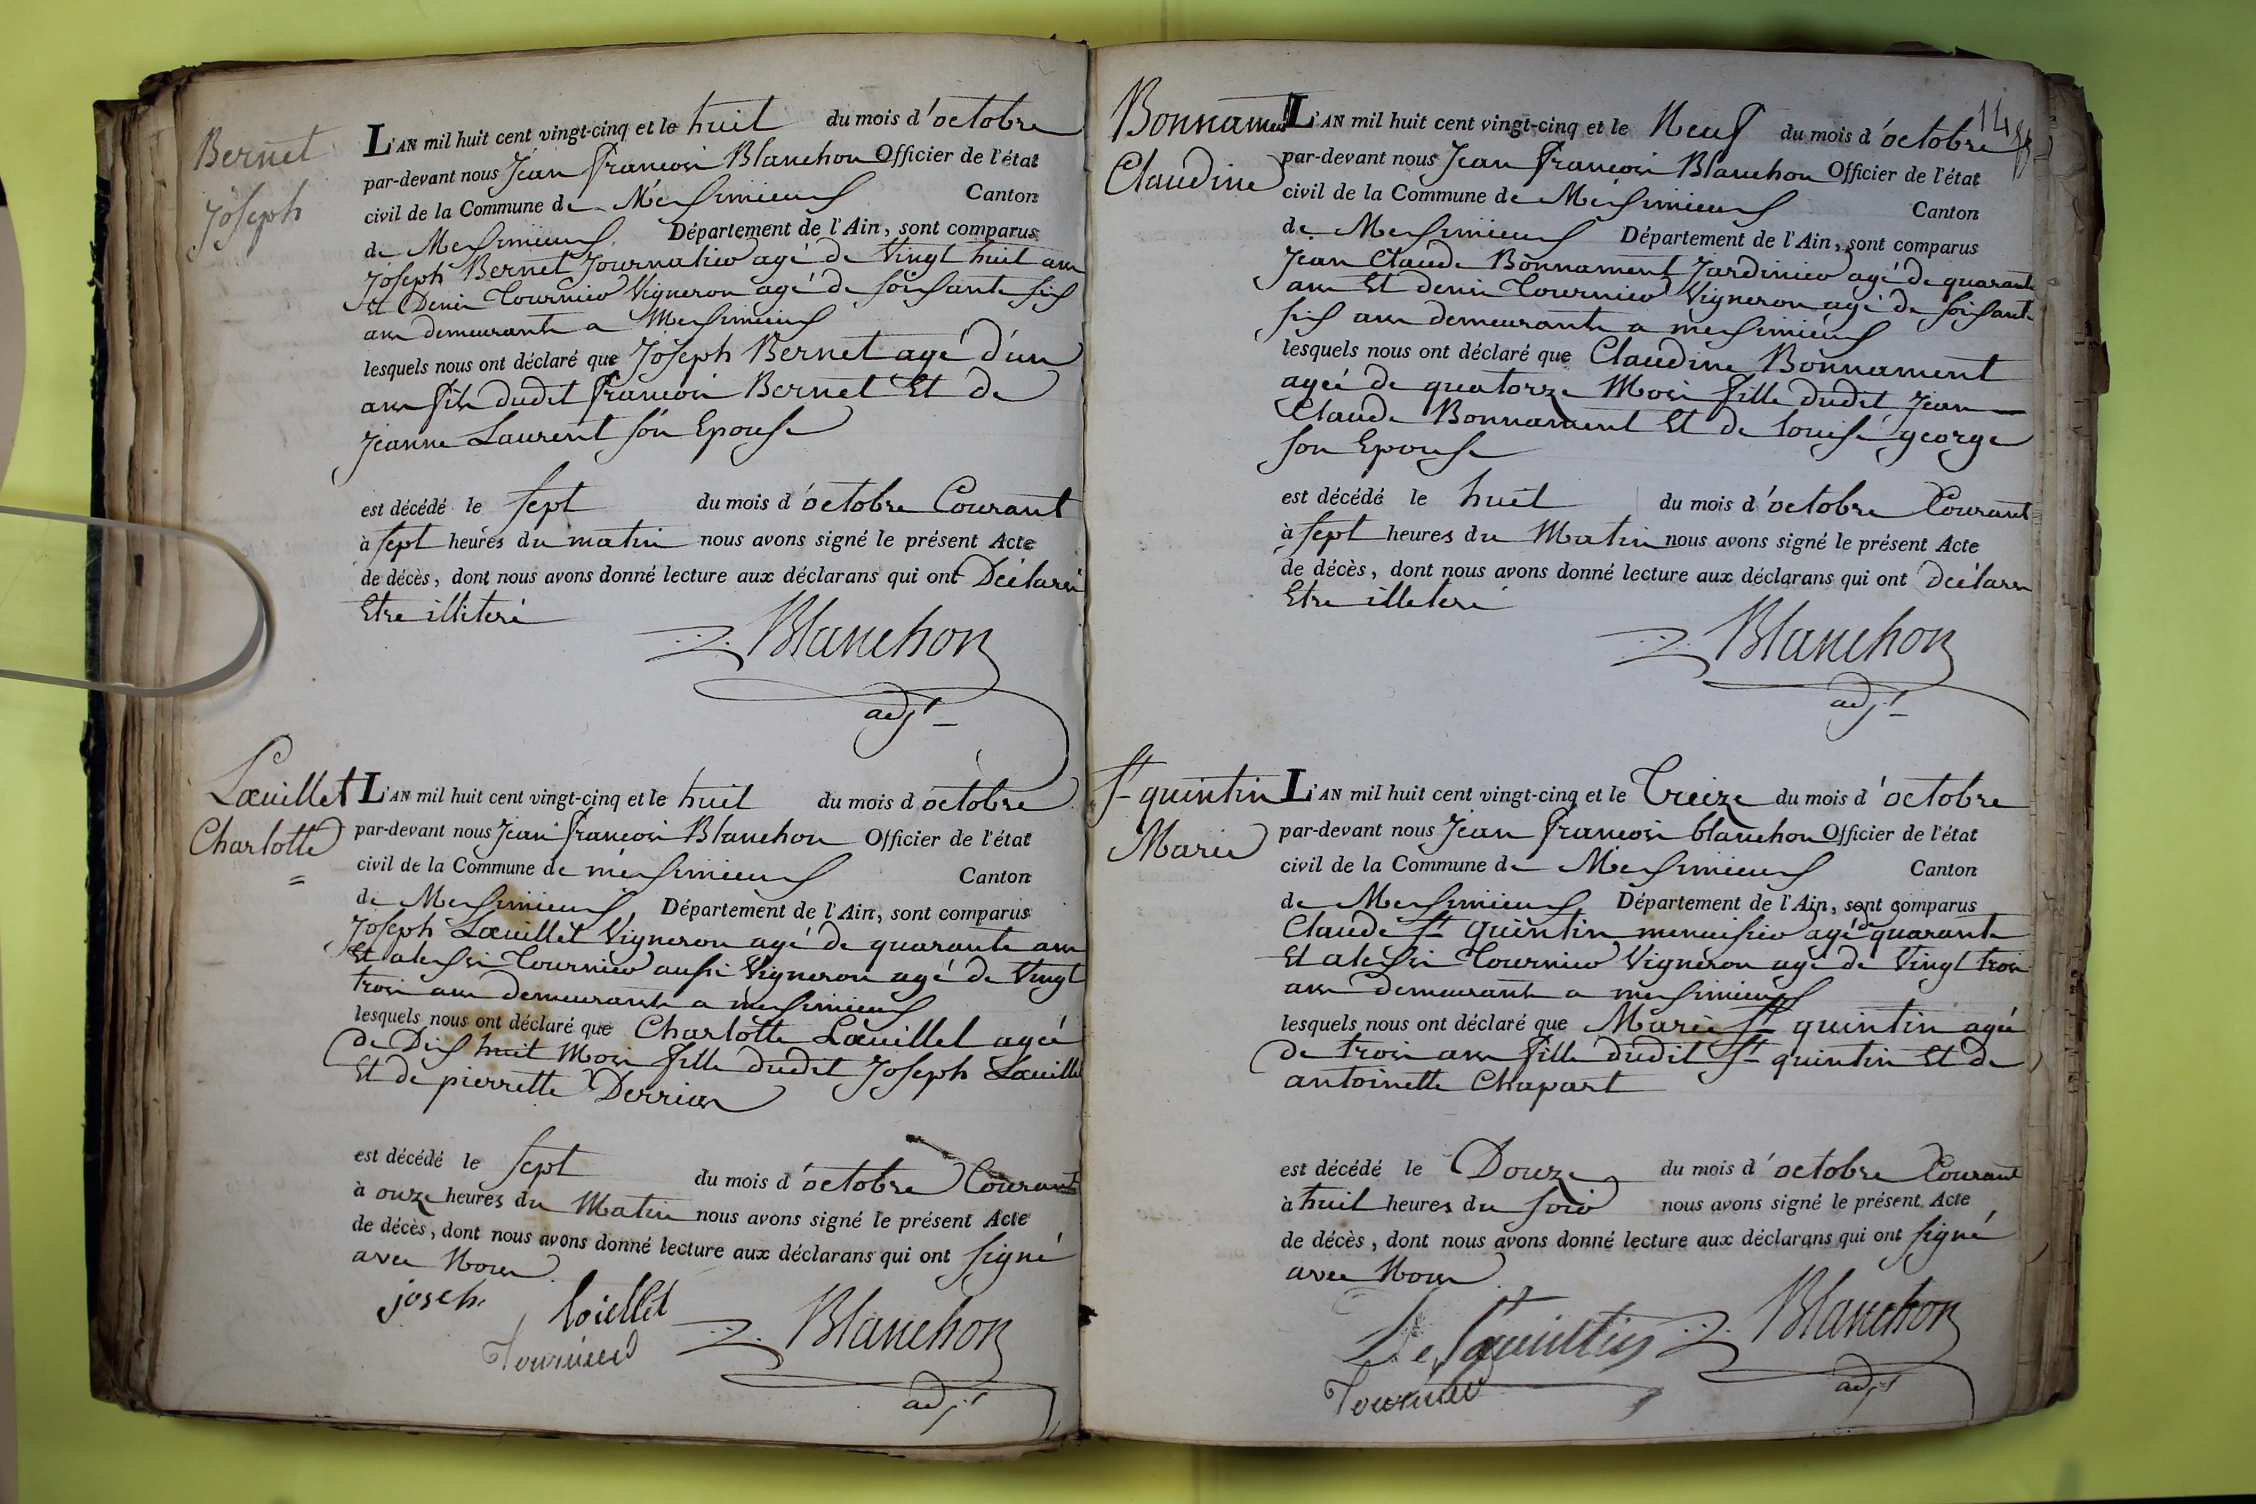 Bernet
Joseph
L'AN mil huit cent vingt-cinq et le huit du mois d'octobre
par-devant nous Jean françois Blanchon Officier de l'état
civil de la Commune de Messimieux Canton
de Messimieux Département de l'Ain, sont comparus
Joseph Bernet Journalier agé de vingt huit ans
Et Denis Tournier Vigneron agé de soissante six
ans demeurants a Messimieux
lesquels nous ont déclaré que Joseph Bernet agé d'un
ans fils dudit françois Bernet Et de
Jeanne Laurent son Epouse
est décédé le sept du mois d'octobre Courant
à sept heures du matin nous avons signé le présent Acte
de décès, dont nous avons donné lecture aux déclarans qui ont Déclaré
Etre illiteré
Blanchon
adjt
Lœuillet
Charlotte
L'AN mil huit cent vingt-cinq et le huit du mois d'octobre
par-devant nous Jean françois Blanchon Officier de l'état
civil de la Commune de messimieux Canton
de Messimieux Département de l'Ain, sont comparus
Joseph Lœuillet Vigneron agé de quarante ans
Et alessi Tournier aussi Vigneron agé de Vingt
trois ans demeurants a messimieux
lesquels nous ont déclaré que Charlotte Lœuillet agée
de Dis huit Mois fille dudit Joseph Lœuillet
Et de pierrette Derrien
est décédé le sept du mois d'octobre Courant
à onze heures du Matin nous avons signé le présent Acte
de décès, dont nous avons donné lecture aux déclarans qui ont signé
avec Nous
joseh loiellet
Tournier
Blanchon
adjt
Bonnament
Claudine
L'AN mil huit cent vingt-cinq et le Neuf du mois d'octobre
par-devant nous Jean françois Blanchon Officier de l'état
civil de la Commune de Messimieux Canton
de Messimieux Département de l'Ain, sont comparus
Jean Claude Bonnament Jardinier agé de quarante
ans Et denis Tournier Vigneron agé de soissante
six ans demeurants a messimieux
lesquels nous ont déclaré que Claudine Bonnament
agée de quatorze Mois fille dudit Jean
Claude Bonnament Et de louise george
son Epouse
est décédé le huit du mois d'octobre Courant
à sept heures du Matin nous avons signé le présent Acte
de décès, dont nous avons donné lecture aux déclarans qui ont déclaré
Etre illeteré
Blanchon
adjt
St quintin
Marie
L'AN mil huit cent vingt-cinq et le Treize du mois d'octobre
par-devant nous Jean françois blanchon Officier de l'état
civil de la Commune de Messimieux Canton
de Messimieux Département de l'Ain, sont comparus
Claude St quintin menuisier agé de quarante
Et alessi Tournier Vigneron agé de Vingt trois
ans Demeurants a messimieux
lesquels nous ont déclaré que Marie St quintin agée
de trois ans fille dudit St quintin Et de
antoinette Chapart
est décédé le Douze du mois d'octobre Courant
à huit heures du soir nous avons signé le présent Acte
de décès, dont nous avons donné lecture aux déclarans qui ont signé
avec Nous
Blanchon
Tournier
adjt